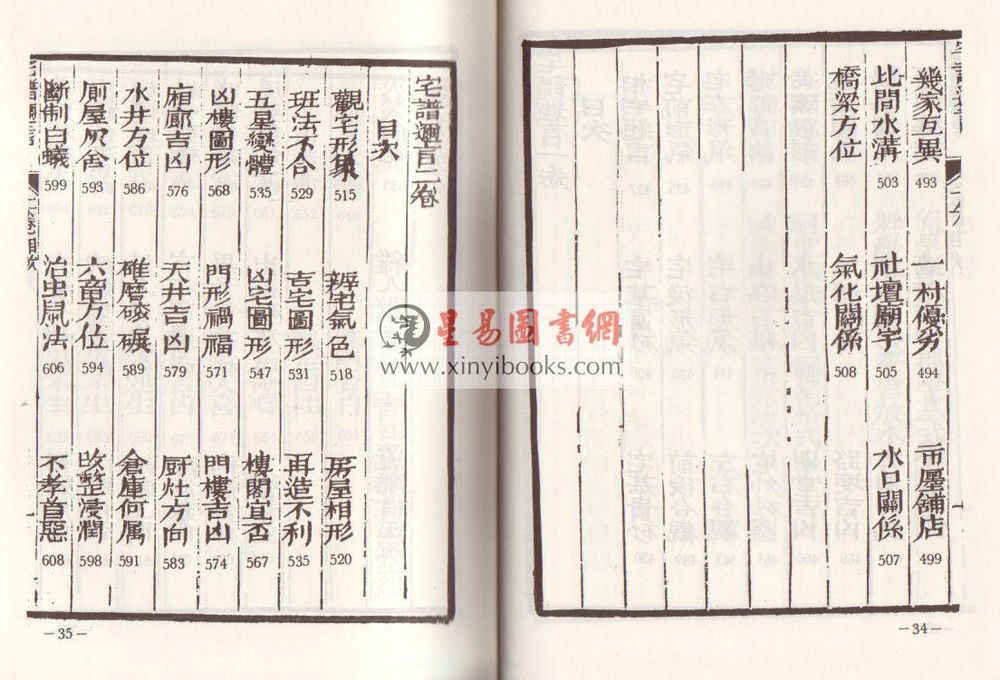 幾家互異 493 一村優劣 494 市屋舖店 499
比間水溝 503 社壇廟宇 505 水口關係 507
橋梁方位 氣化關係 508
—34—
宅譜邇言二卷
目次
觀宅形象 515 辨宅氣色 518 房屋相形 520
班法不合 529 吉宅圖形 531 再造不利 535
五星變體 535 凶宅圖形 547 樓閣宜否 567
凶樓圖形 568 門形禍福 571 門樓吉凶 574
廂廊吉凶 576 天井吉凶 579 厨灶方向 583
水井方位 586 碓磨 碾 589 倉庫何属 591
厠屋灰舍 593 六畜方位 594 改整浸潤 598
斷制白蟻 599 治虫鼠法 606 不孝首惡 608
—35—
星易圖書網
www.xinyibooks.com